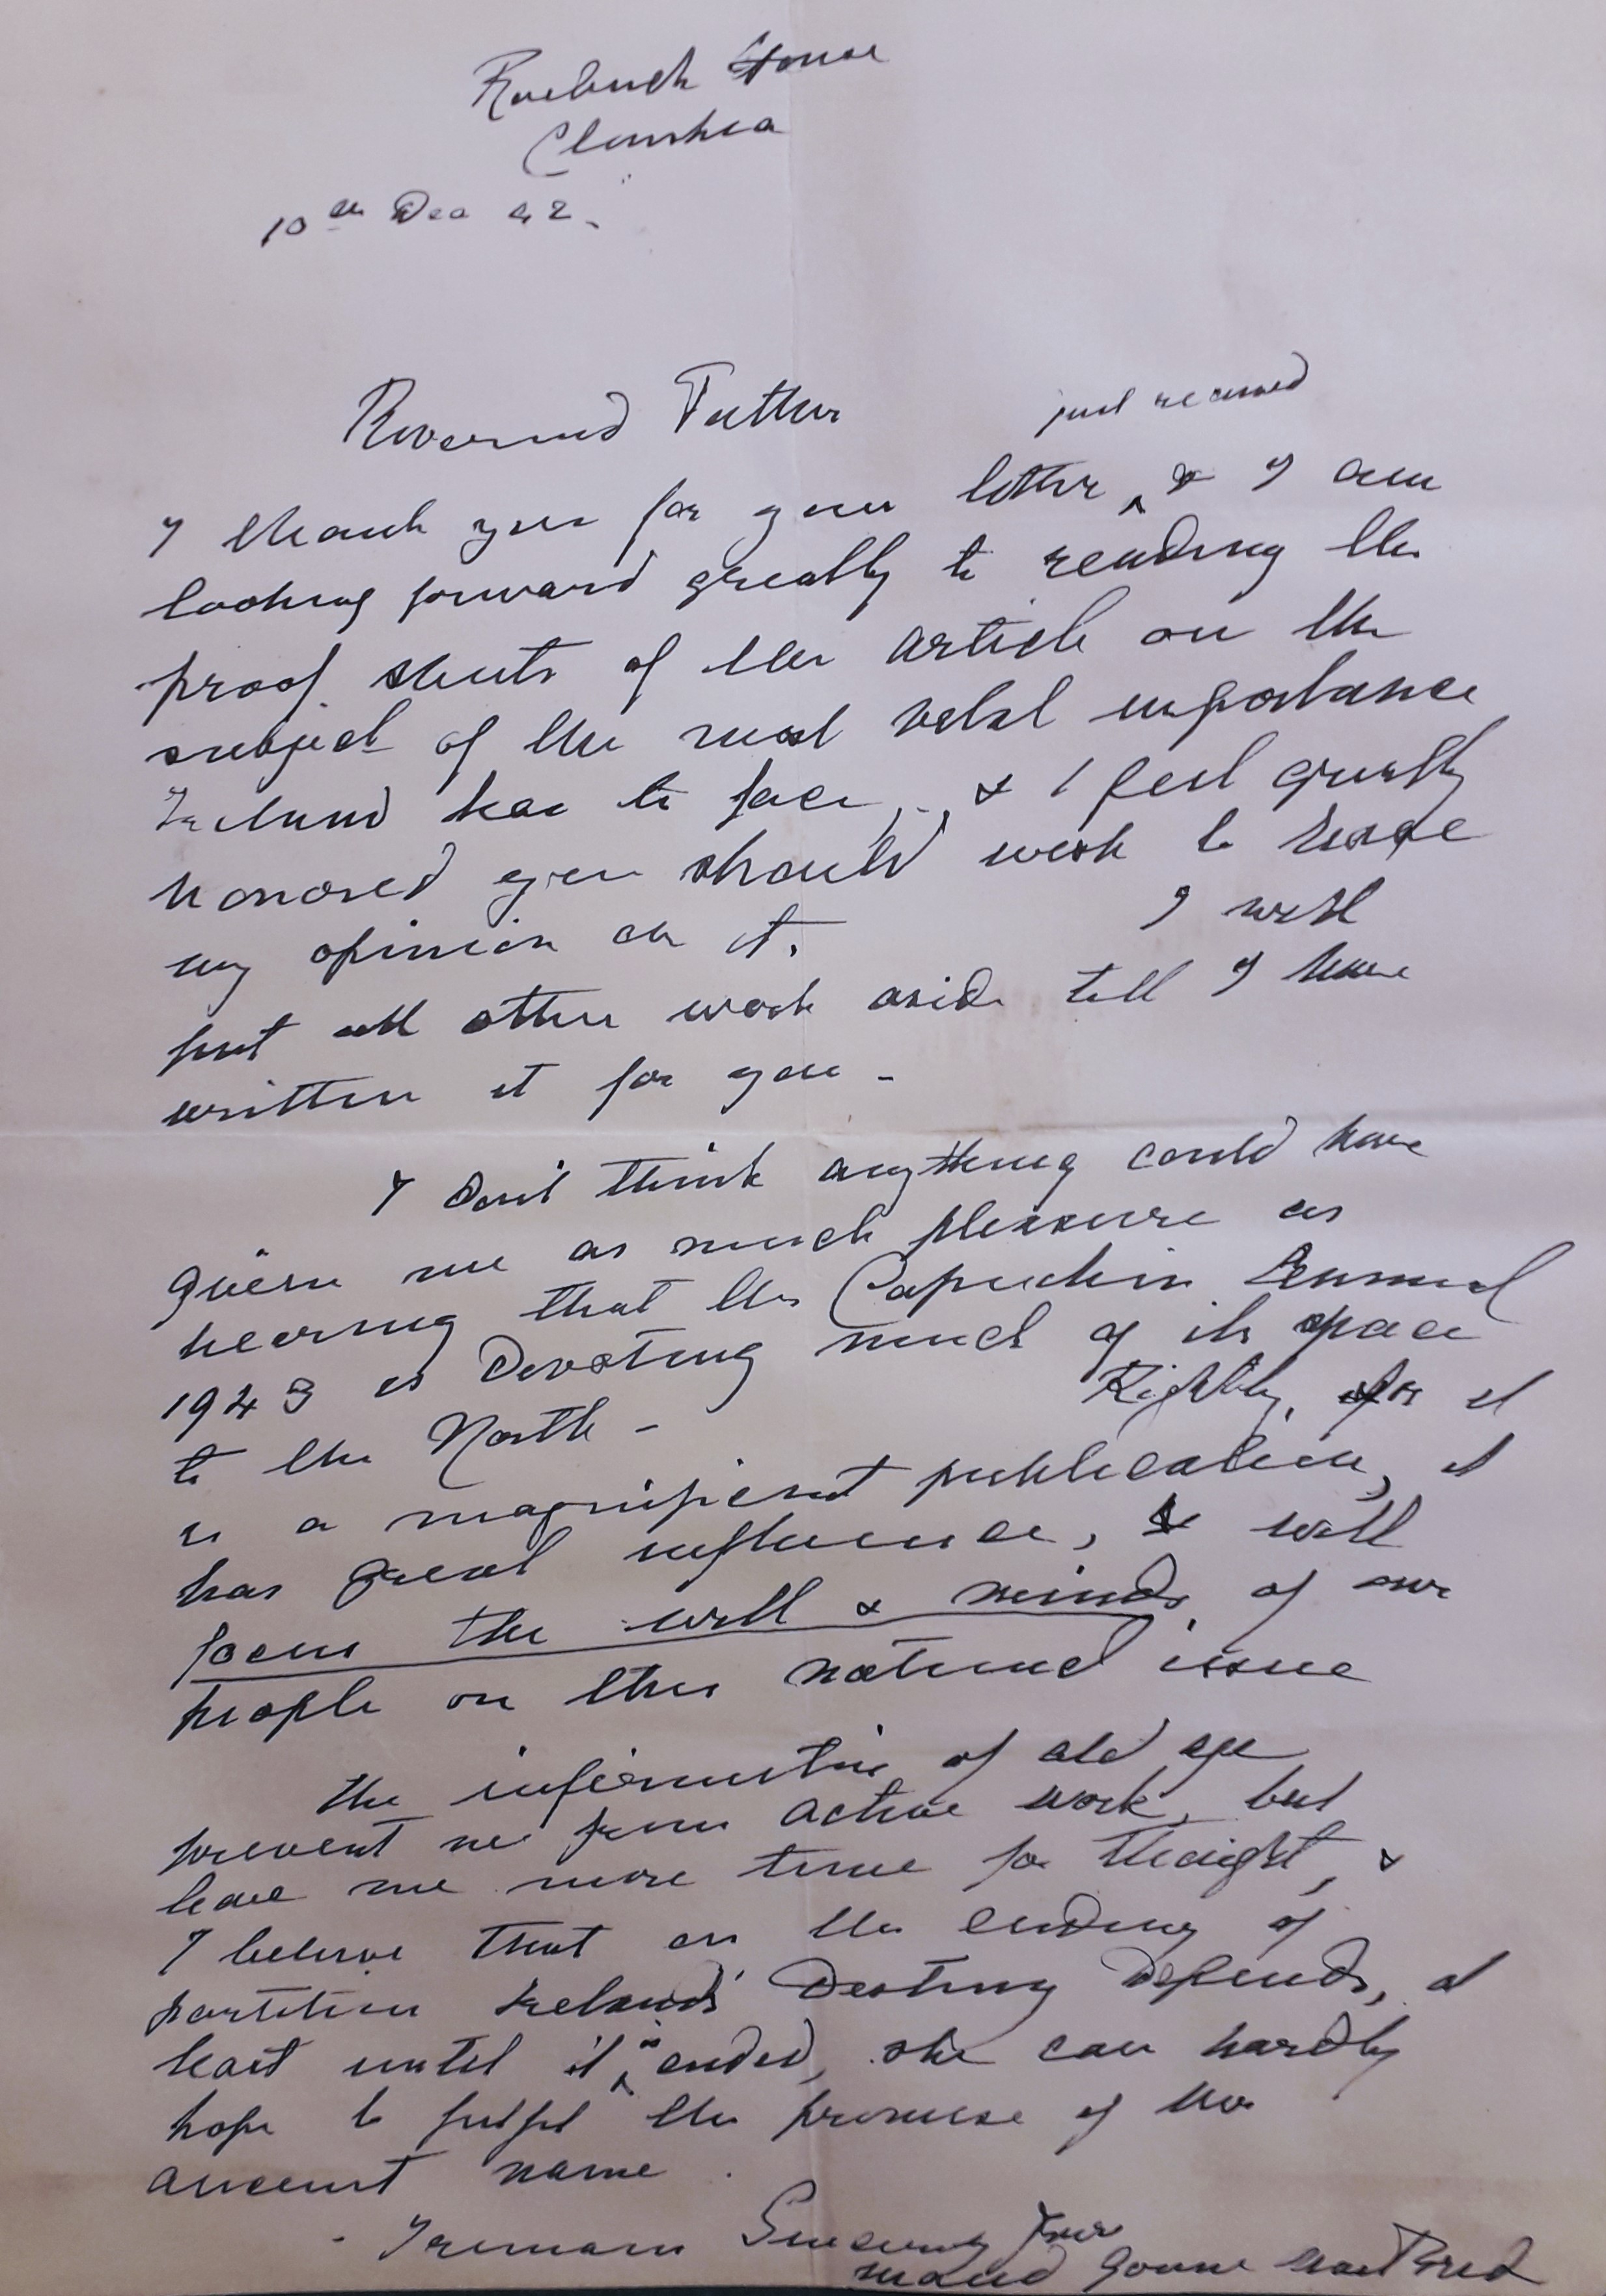 Roebuck House
Clonskea
10th Dec 42.
Reverend Father
just received
I thank you for your letter ‸ & I am
looking forward greatly to reading the
proof sheets of the article on the
subject of the most vital importance
Ireland has to face, & I feel greatly
honored you should wish to have
my opinion on it.
I will
put all other work aside till I have
written it for you -
I don't think anything could have
given me as much pleasure as
hearing that the Capuchin Annual
1943 is devoting much of its space
to the North -
Rightly, for it
is a magnificent publication, it
has great influence, & will
focus the will & minds of our
people on this national issue
The infirmities of old age
prevent me from active work, but
leave me more time for thought, &
I believe that on the ending of
partition Ireland's Destiny Depends, at
least until it ‸ is ended, she can hardly
hope to fulfil the promise of her
ancient name
I remain Sincerely Yours
Maud Gonne MacBride